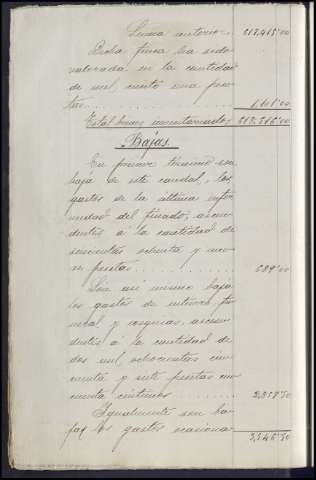 Suma anterior.. 212,415'00
Dicha finca ha sido
valorada en la cantidad
de mil ciento una pese-
tas................ 1,101'00
Total bienes inventariados 213,516'00
Bajas.
En primer término son
baja de este caudal, los
gastos de la última enfer-
medad del finado, ascen-
dentes á la cantidad de
seiscientas ochenta y nue-
ve pesetas............. 689'00
Son asi mismo baja
los gastos de entierro, fu-
neral y exequias, ascen-
dentes á la cantidad de
dos mil ochocientas cin-
cuenta y siete pesetas cin-
cuenta céntimos........ 2,857'50
Igualmente son ba-
jas los gastos ocasiona-
3,546'50